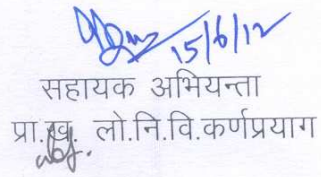 15/6/12
सहायक अभियन्ता
प्रा.ख. लो.नि.वि.कर्णप्रयाग